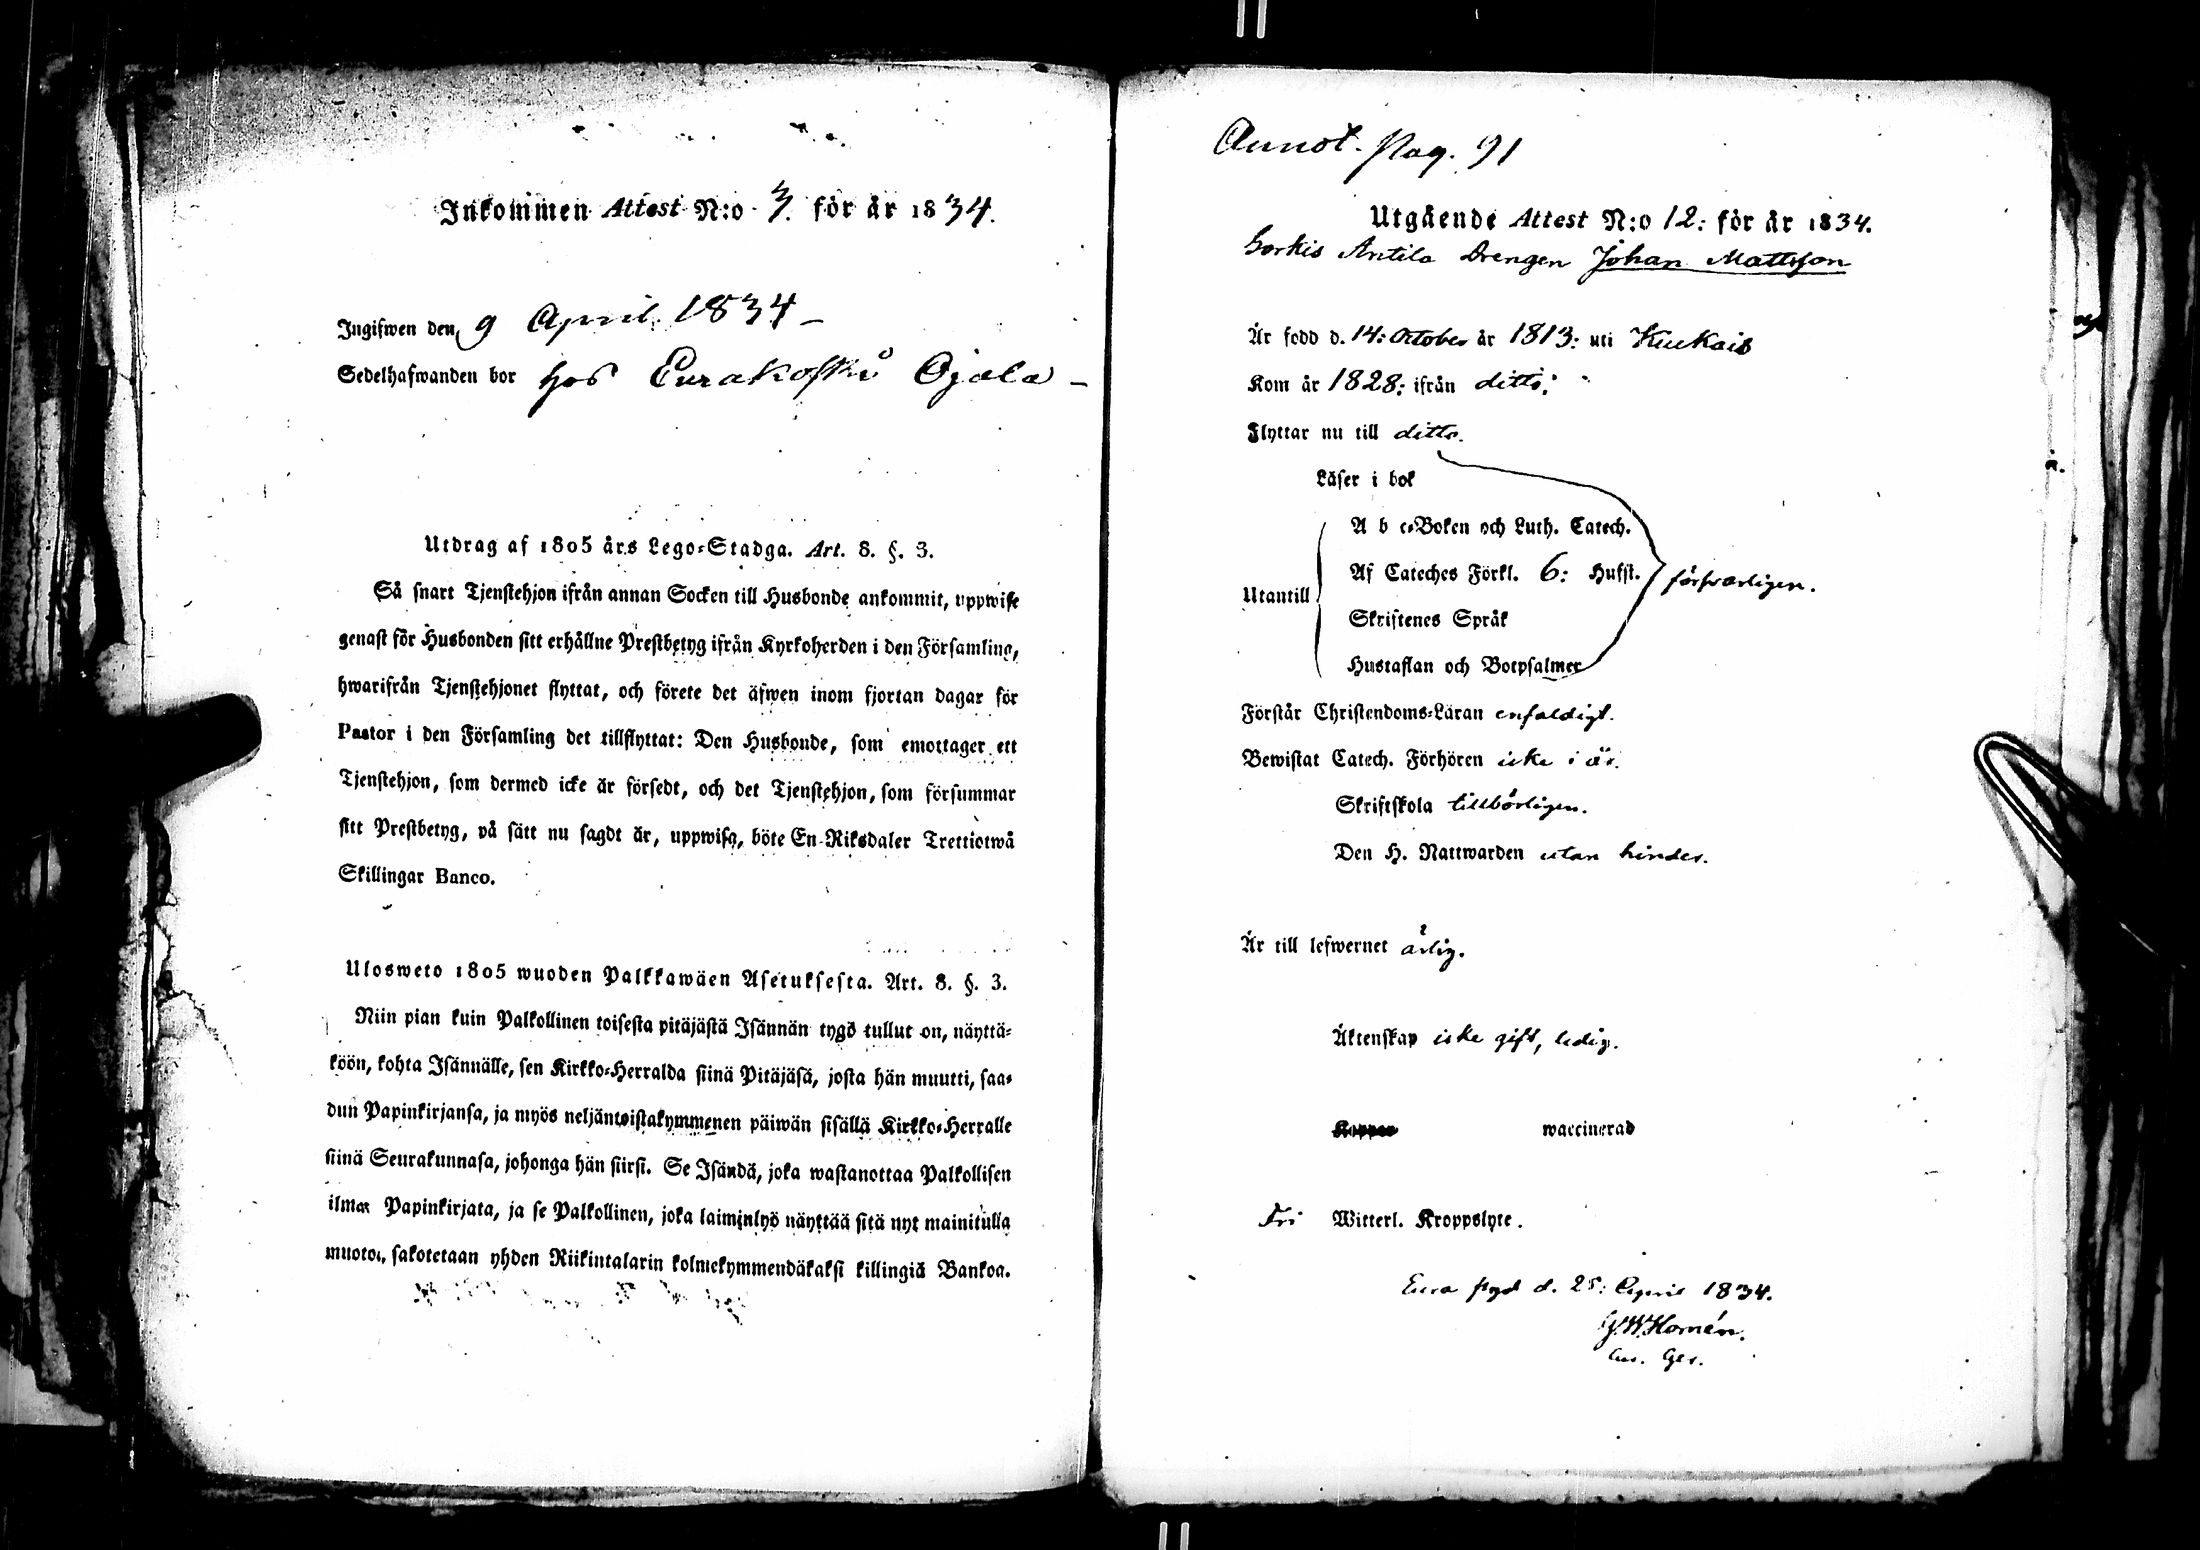 Inkommen Attest N:o 3. för år 1834.
Ingifwen den 9 April 1834 –
Sedelhafwanden bor hos Eurakoski Ojala –
Utdrag af 1805 års Lego-Stadga. Art. 8. §. 3.
Så snart Tjenstehjon ifrån annan Socken till Husbonde ankommit, uppwise
genast för Husbonden sitt erhållne Prestbetyg ifrån Kyrkoherden i den Församling,
hwarifrån Tjenstehjonet flyttat, och förete det äfwen inom fjortan dagar för
Pastor i den Församling det tillflyttat: Den Husbonde, som emottager ett
Tjenstehjon, som dermed icke är försedt, och det Tjenstehjon, som försummar
sitt Prestbetyg, på sätt nu sagdt är, uppwisa, böte En Riksdaler Trettiotwå
Skillingar Banco.
Ulosweto 1805 wuoden Palkkawäen Asetuksesta. Art. 8. §. 3.
Niin pian kuin Palkollinen toisesta pitäjästä Isännän tygö tullut on, näyttä-
köön, kohta Isännälle, sen Kirkko-Herralda siinä Pitäjäsä, josta hän muutti, saa-
dun Papinkirjansa, ja myös neljäntoistakymmenen päiwän sisällä Kirkko-Herralle
siinä Seurakunnasa, johonga hän siirsi. Se Isändä, joka wastanottaa Palkollisen
ilman Papinkirjata, ja se Palkollinen, joka laiminlyö näyttää sitä nyt mainitulla
muotoa, sakotetaan yhden Riikintalarin kolmekymmendäkaksi killingiä Bankoa.
Annot. Pag. 91
Utgående Attest N:o 12: för år 1834.
Sorkis Antila Drengen Johan Mattsson
Är född d. 14: October år 1813: uti Kiukais
Kom år 1828: ifrån ditto:
Flyttar nu till ditto.
Läser i bok
A b c-Boken och Luth. Catech.
Af Cateches Förkl. 6: Hufst. försvarligen.
Utantill
Skriftenes Språk
Hustaflan och Botpsalmer
Förstår Christendoms-Läran enfaldigt.
Bewistat Catech. Förhören icke i år.
Skriftskola tillbörligen.
Den H. Nattwarden utan hinder.
Är till lefwernet ärlig.
Äktenskap icke gift, ledig.
Koppor waccinerad
Fri Witterl. Kroppslyte.
Eura pgd d. 25: April 1834.
Homén.